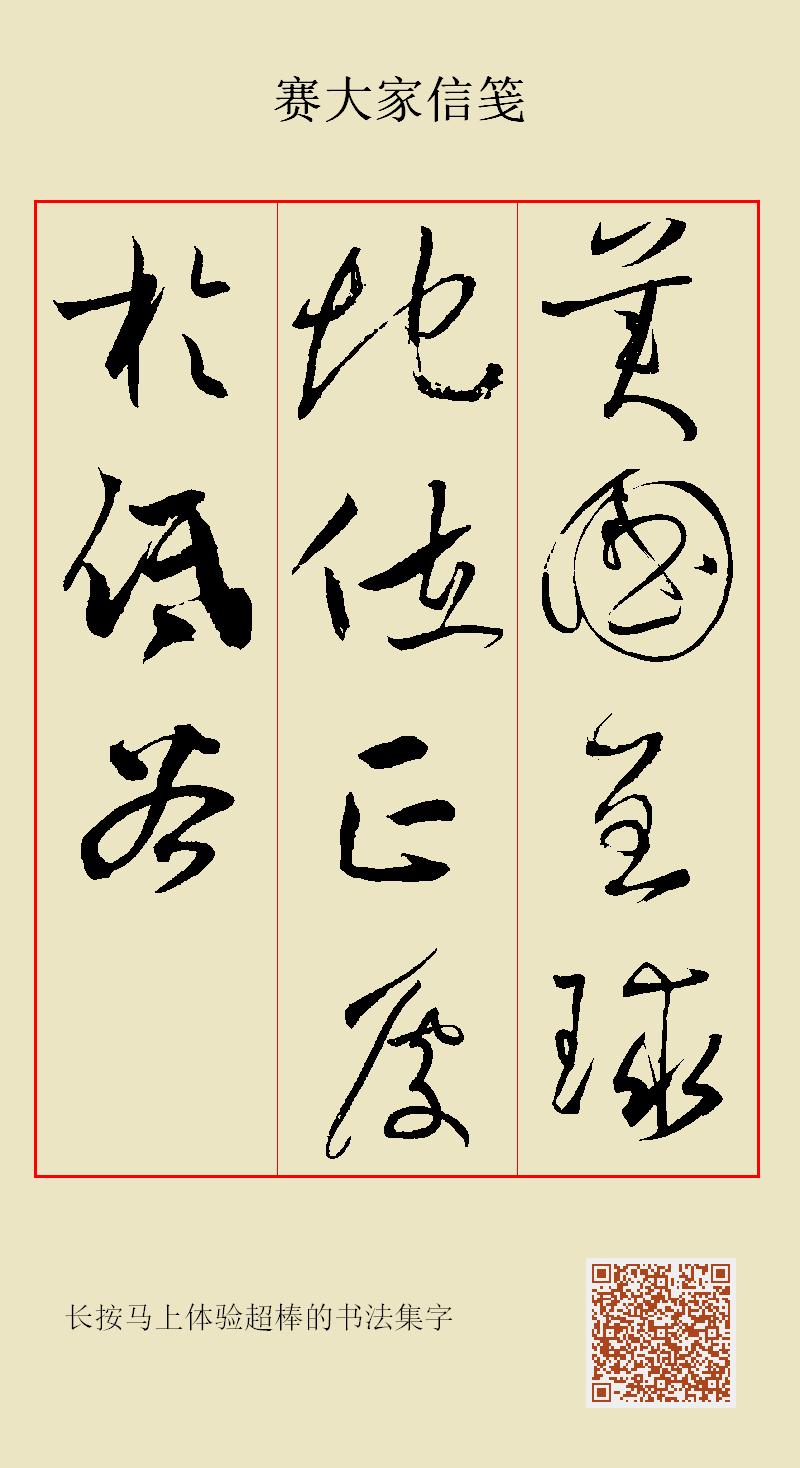 赛大家信笺
美国全球
地位正处
於低谷
长按马上体验超棒的书法集字